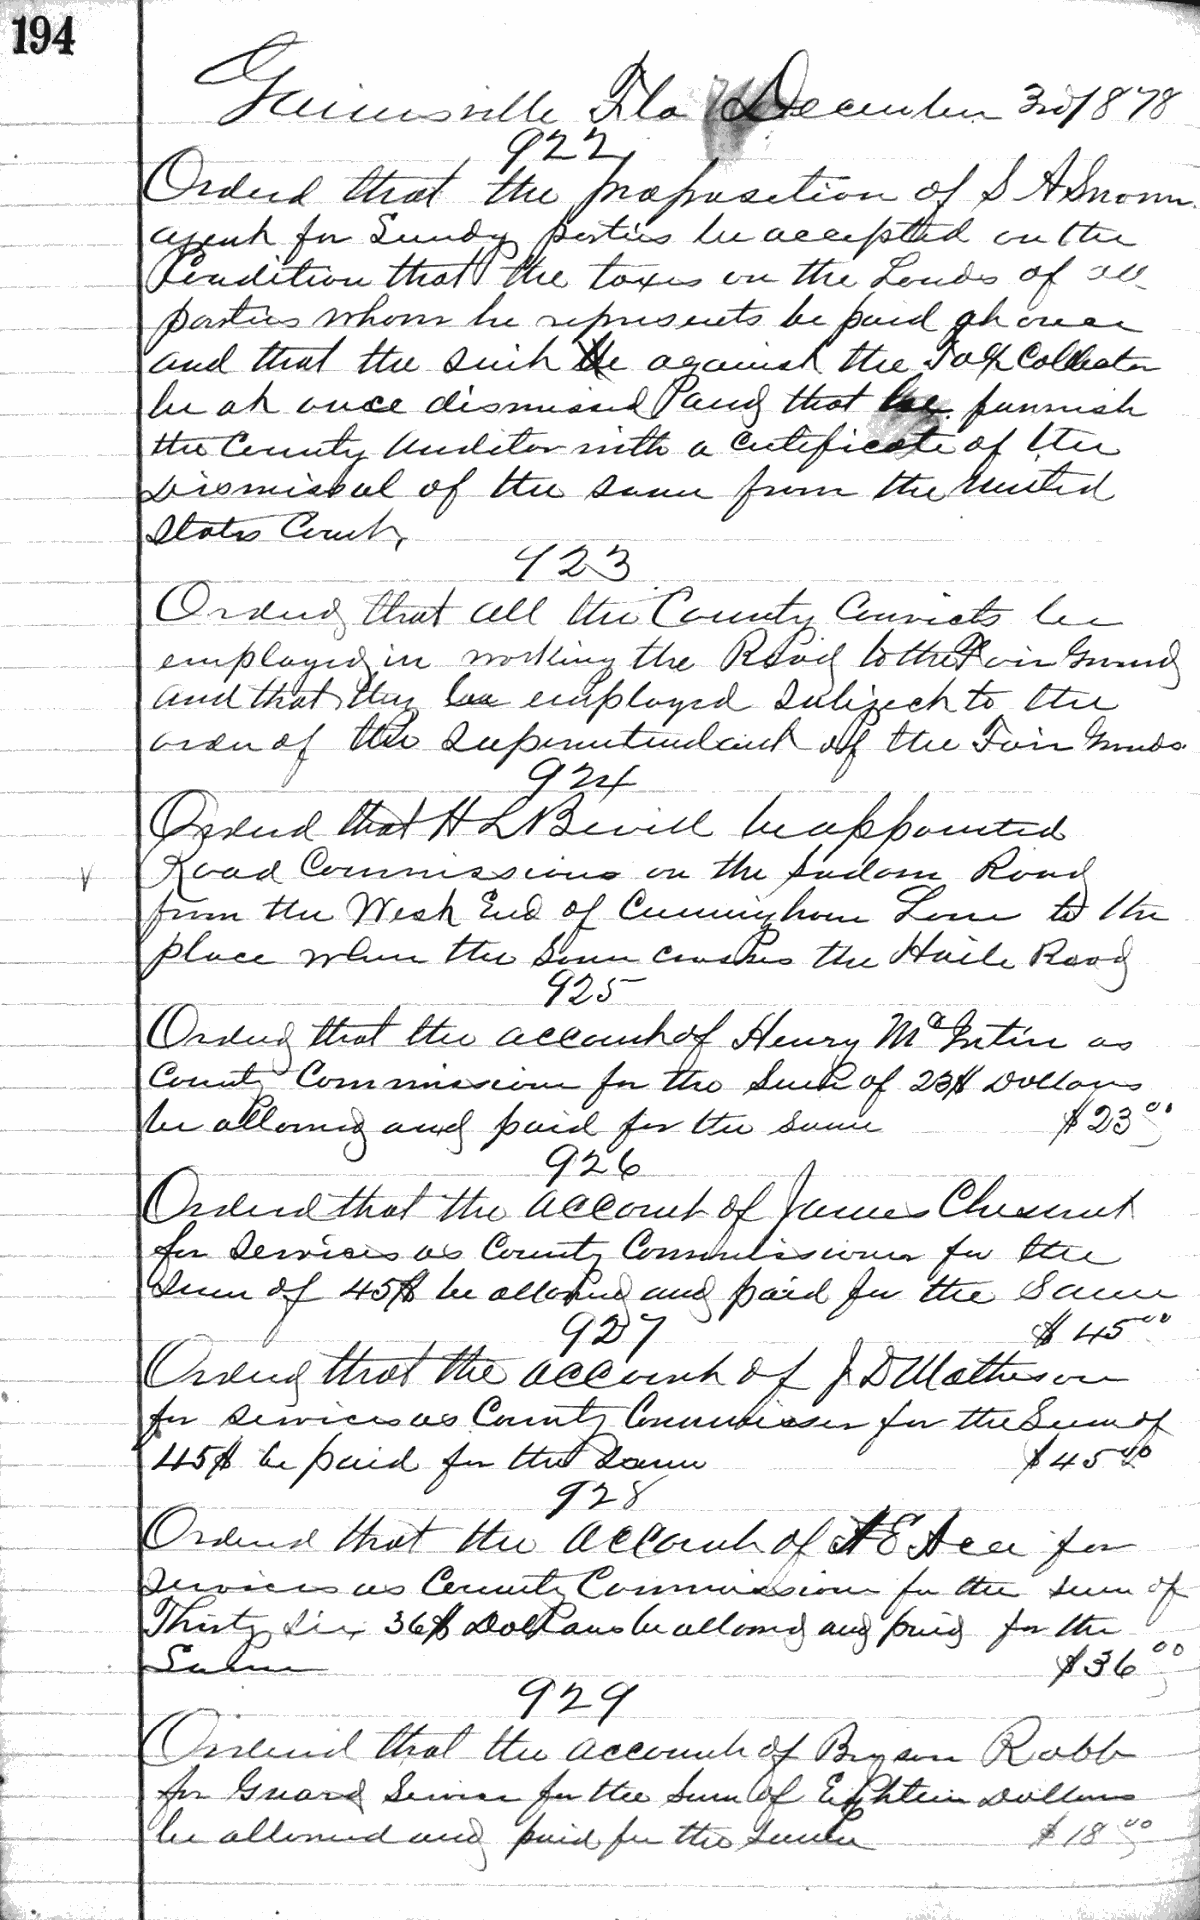 194
Gainesville Fla December 3rd 1878
922
Orderd that the proposition of S A
agent for Sundy parties be accepted on the
Condition that the taxes on the Lands of all
parties whom he represents be paid at once
and that the suit against the Tax Collector
be at once dismissed and that he furnish
the County Auditor with a certificate of the
Dismissal of the same from the United
States Court,
923
Orderd that all the County Convicts be
employed in working the Road to the Fair Grounds
and that they be employed subject to the
order of the Superintendant of the Fair Grounds.
924
Orderd that H L Bevill be appointed
Road Commissioner on the Road
from the West End of Cunningham Lane to the
place where the same crosses the Haile Road
925
Orderd that the account of Henry as
County Commissioner for the Sum of 23$ Dollars
be allowed and paid for the same $23 00
926
Orderd that the account of James Chesnut
for Services as County Commissioner for the
Sum of 45$ be allowed and paid for the Same
$45 00
927
Orderd that the account of J D Matheson
for services as County Commisser for the Sum of
45$ be paid for the Same $45 00
928
Orderd that the account of for
services as County Commissioner for the sum of
Thirty Six 36$ Dollars be allowed and paid for the
Same $36 00
929
Orderd that the account of Bryson Robb
for Guard Service for the Sum of Eightein Dollars
be allowed and paid for the Same $18 00